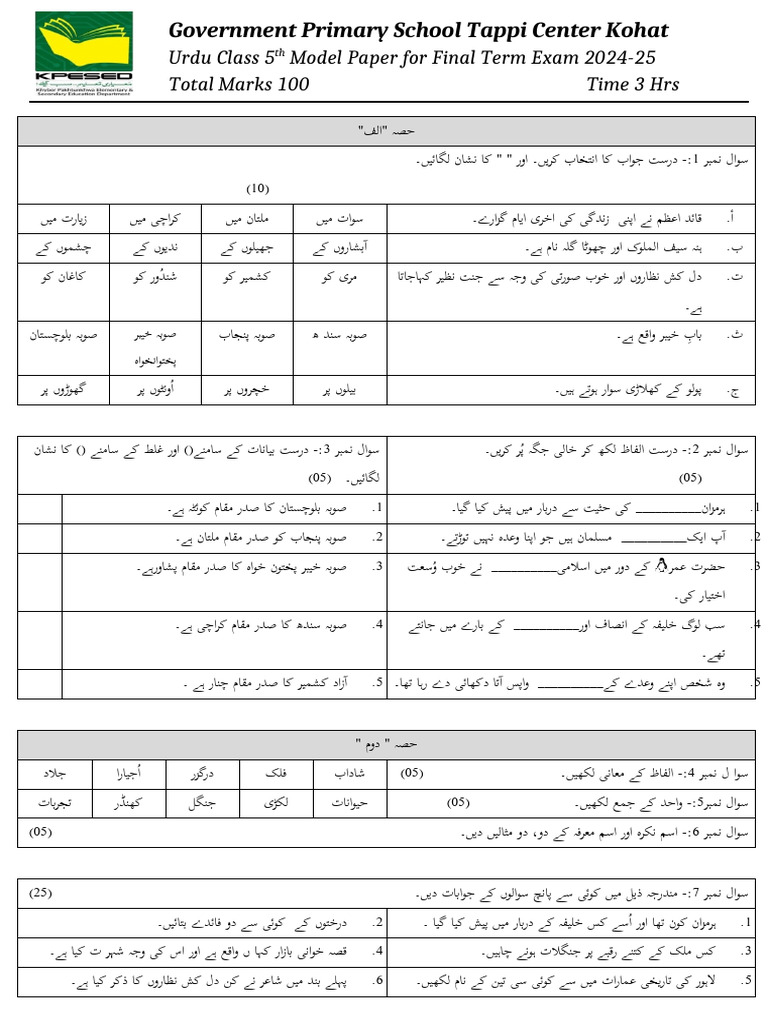 KPESED
Khyber Pakhtunkhwa Elementary &
Secondary Education Department
Government Primary School Tappi Center Kohat
Urdu Class 5th Model Paper for Final Term Exam 2024-25
Total Marks 100 Time 3 Hrs
حصہ "الف"
سوال نمبر 1:- درست جواب کا انتخاب کریں۔ اور " " کا نشان لگائیں۔
(10)
أ. قائد اعظم نے اپنی زندگی کی اخری ایام گزارے۔ سوات میں ملتان میں کراچی میں زیارت میں
ب. ہنہ سیف الملوک اور چھوٹا گلہ نام ہے۔ آبشاروں کے جھیلوں کے ندیوں کے چشموں کے
ت. دل کش نظاروں اور خوب صورتی کی وجہ سے جنت نظیر کہاجاتا مری کو کشمیر کو شندُور کو کاغان کو
ہے۔
ث. بابِ خیبر واقع ہے۔ صوبہ سند ھ صوبہ پنجاب صوبہ خیبر صوبہ بلوچستان
پختوانخواہ
ج. پولو کے کھلاڑی سوار ہوتے ہیں۔ بیلوں پر خچروں پر اُونٹوں پر گھوڑوں پر
سوال نمبر 2:- درست الفاظ لکھ کر خالی جگہ پُر کریں۔
(05)
1. ہرمزان__________ کی حثیت سے دربار میں پیش کیا گیا۔
2. آپ ایک__________ مسلمان ہیں جو اپنا وعدہ نہیں توڑتے۔
3. حضرت عمر کے دور میں اسلامی__________ نے خوب وُسعت
اختیار کی۔
4. سب لوگ خلیفہ کے انصاف اور__________ کے بارے میں جانتے
تھے۔
5. وہ شخص اپنے وعدے کے__________ واپس آتا دکھائی دے رہا تھا۔
سوال نمبر 3:- درست بیانات کے سامنے() اور غلط کے سامنے () کا نشان
لگائیں۔ (05)
1. صوبہ بلوچستان کا صدر مقام کوئٹہ ہے۔
2. صوبہ پنجاب کو صدر مقام ملتان ہے۔
3. صوبہ خیبر پختون خواہ کا صدر مقام پشاورہے۔
4. صوبہ سندھ کا صدر مقام کراچی ہے۔
5. آزاد کشمیر کا صدر مقام چنار ہے ۔
حصہ " دوم "
سوا ل نمبر 4:- الفاظ کے معانی لکھیں۔ (05) شاداب فلک درگزر اُجیارا جلاد
سوال نمبر5:- واحد کے جمع لکھیں۔ (05) حیوانات لکڑی جنگل کھنڈر تجربات
سوال نمبر 6:- اسم نکرہ اور اسم معرفہ کے دو، دو مثالیں دیں۔ (05)
سوال نمبر 7:- مندرجہ ذیل میں کوئی سے پانچ سوالوں کے جوابات دیں۔ (25)
1. ہرمزان کون تھا اور اُسے کس خلیفہ کے دربار میں پیش کیا گیا ۔ 2. درختوں کے کوئی سے دو فائدے بتائیں۔
3. کس ملک کے کتنے رقبے پر جنگلات ہونے چاہیں۔ 4. قصہ خوانی بازار کہا ں واقع ہے اور اس کی وجہ شہر ت کیا ہے۔
5. لاہور کی تاریخی عمارات میں سے کوئی سی تین کے نام لکھیں۔ 6. پہلے بند میں شاعر نے کن دل کش نظاروں کا ذکر کیا ہے۔